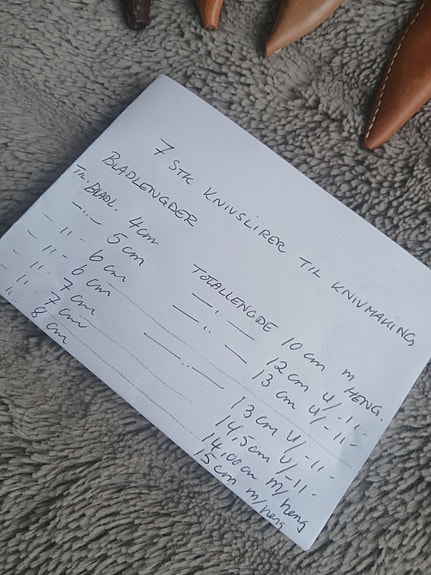 7 STK KNIVSLIRER TIL KNIVMAKING,
BLADLENGDER
TIL BLADL. 4cm TOTALLENGDE 10 cm m HENG.
—.. — 5cm —..— 12 cm u/-11-
- 11 - 6 cm —..— 13 cm u/-11-
- 11 - 6 cm —..— 13 cm u/-11-
- 11 - 7 cm 14,5cm u/-11-
- 11 - 7 cm 14,00cm m/heng
- 11 - 8 cm 15cm m/heng